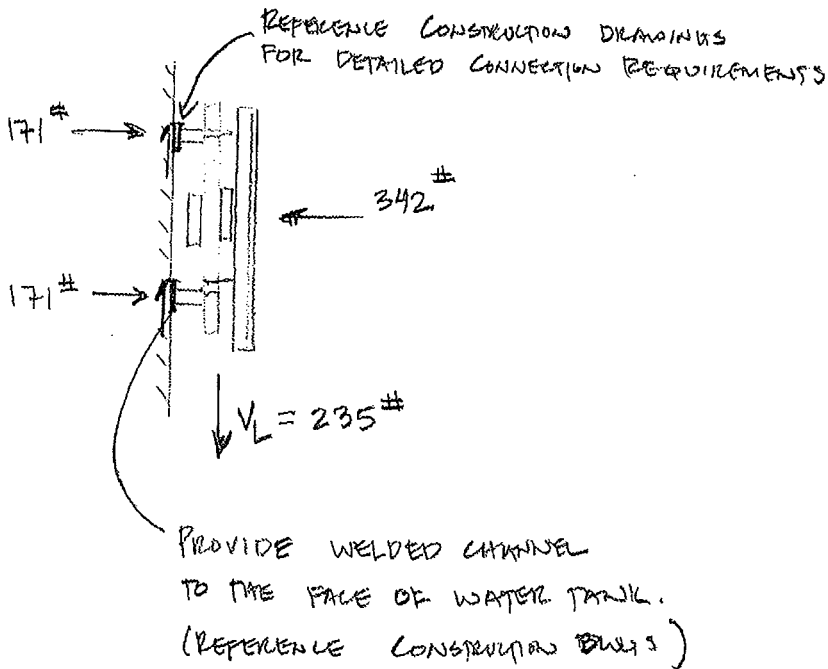 REFERENCE CONSTRUCTION DRAWINGS
FOR DETAILED CONNECTION REQUIREMENTS
171#
342#
171#
VL = 235#
PROVIDE WELDED CHANNEL
TO THE FACE OF WATER TANK.
(REFERENCE CONSTRUCTION DWGS)